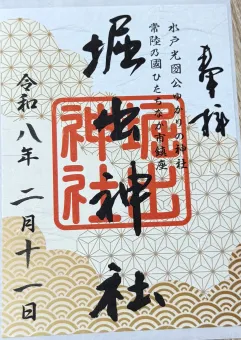 奉拝
水戸光圀公ゆかりの神社
常陸の國ひたちなか市鎮座
堀出神社
堀出神社
令和八年 二月十一日